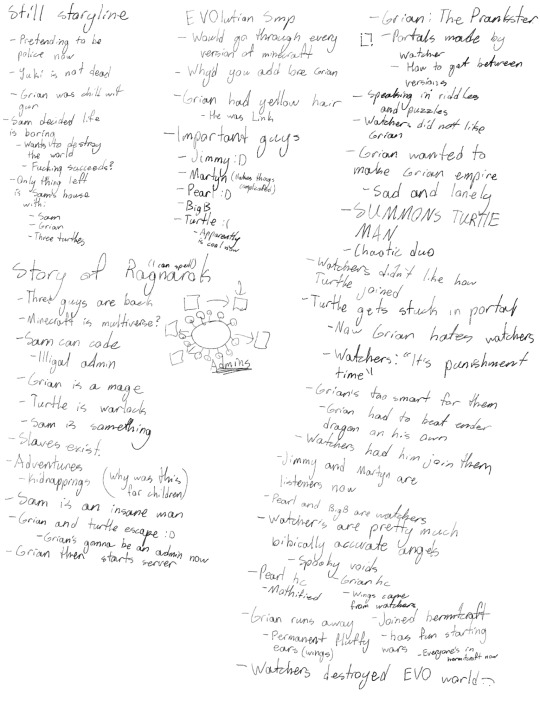 Still storyline
- Pretending to be
police now
- Yuki is not dead
- Grian was chill wit
gun
- Sam decided life
is boring
- Wants to destroy
the world
- Fucking succeeds?
- Only thing left
is Sam's house
with:
- Sam
- Grian
- Three turtles
EVOlution Smp
- Would go through every
version of minecraft
- Why'd you add lore Grian
- Grian had yellow hair
- He was Link
- Important guys
- Jimmy :D
- Martyn (makes things
complicated)
- Pearl :D
- BigB
- Turtle :(
- Apparently
is cool now
Story of Ragnarok
(I can spell)
- Three guys are back
- Minecraft is multiverse?
- Sam can code
- Illigal admin
- Grian is a mage
- Turtle is warlock
- Sam is something
- Slaves exist.
- Adventures
- Kidnappings (why was this
for children)
- Sam is an insane man
- Grian and turtle escape :D
- Grian's gonna be an admin now
- Grian then starts server
Admins
- Grian: The Prankster
- Portals made by
watcher
- How to get between
versions
- Speaking in riddles
and puzzles
- Watchers did not like
Grian
- Grian wanted to
make Grian empire
- Sad and lonely
- SUMMONS TURTLE
MAN
- Chaotic duo
- Watchers didn't like how
Turtle joined
- Turtle gets stuck in portal
- Now Grian hates watchers
- Watchers: "It's punishment
time"
- Grian's too smart for them
- Grian had to beat ender
dragon on his own
- Watchers had him join them
- Jimmy and Martyn are
listeners now
- Pearl and BigB are watchers
- Watcher's are pretty much
bibically accurate angels
- Spooky voids
- Pearl hc
- Mothified
- Grian hc
- Wings came
from watchers
- Grian runs away
- Permanent fluffy
ears (wings)
- Joined hermitcraft
- has fun starting
wars
- Everyone's in
hermitcraft now
- Watchers destroyed EVO world :(